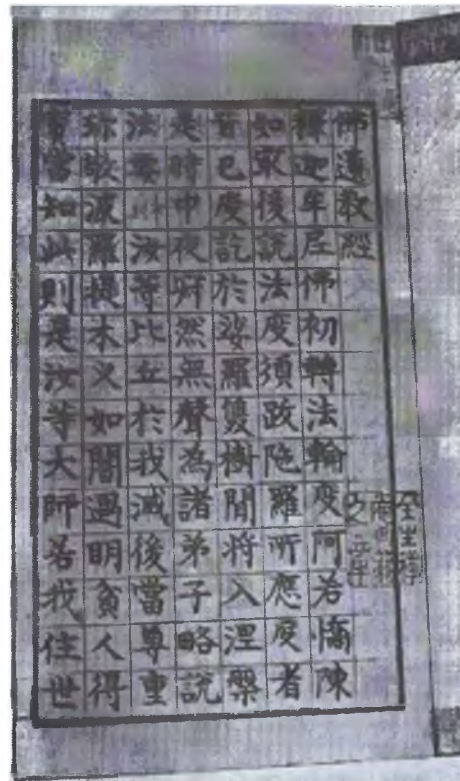 佛遺教經
釋迦牟尼佛初轉法輪度阿若憍陳
如最後說法度須跋陀羅所應度者
皆已度訖於娑羅雙樹間將入涅槃
是時中夜寂然無聲為諸弟子略說
法要汝等比丘於我滅後當尊重
珍敬波羅提木叉如闇遇明貧人得
寶當知此則是汝等大師若我住世